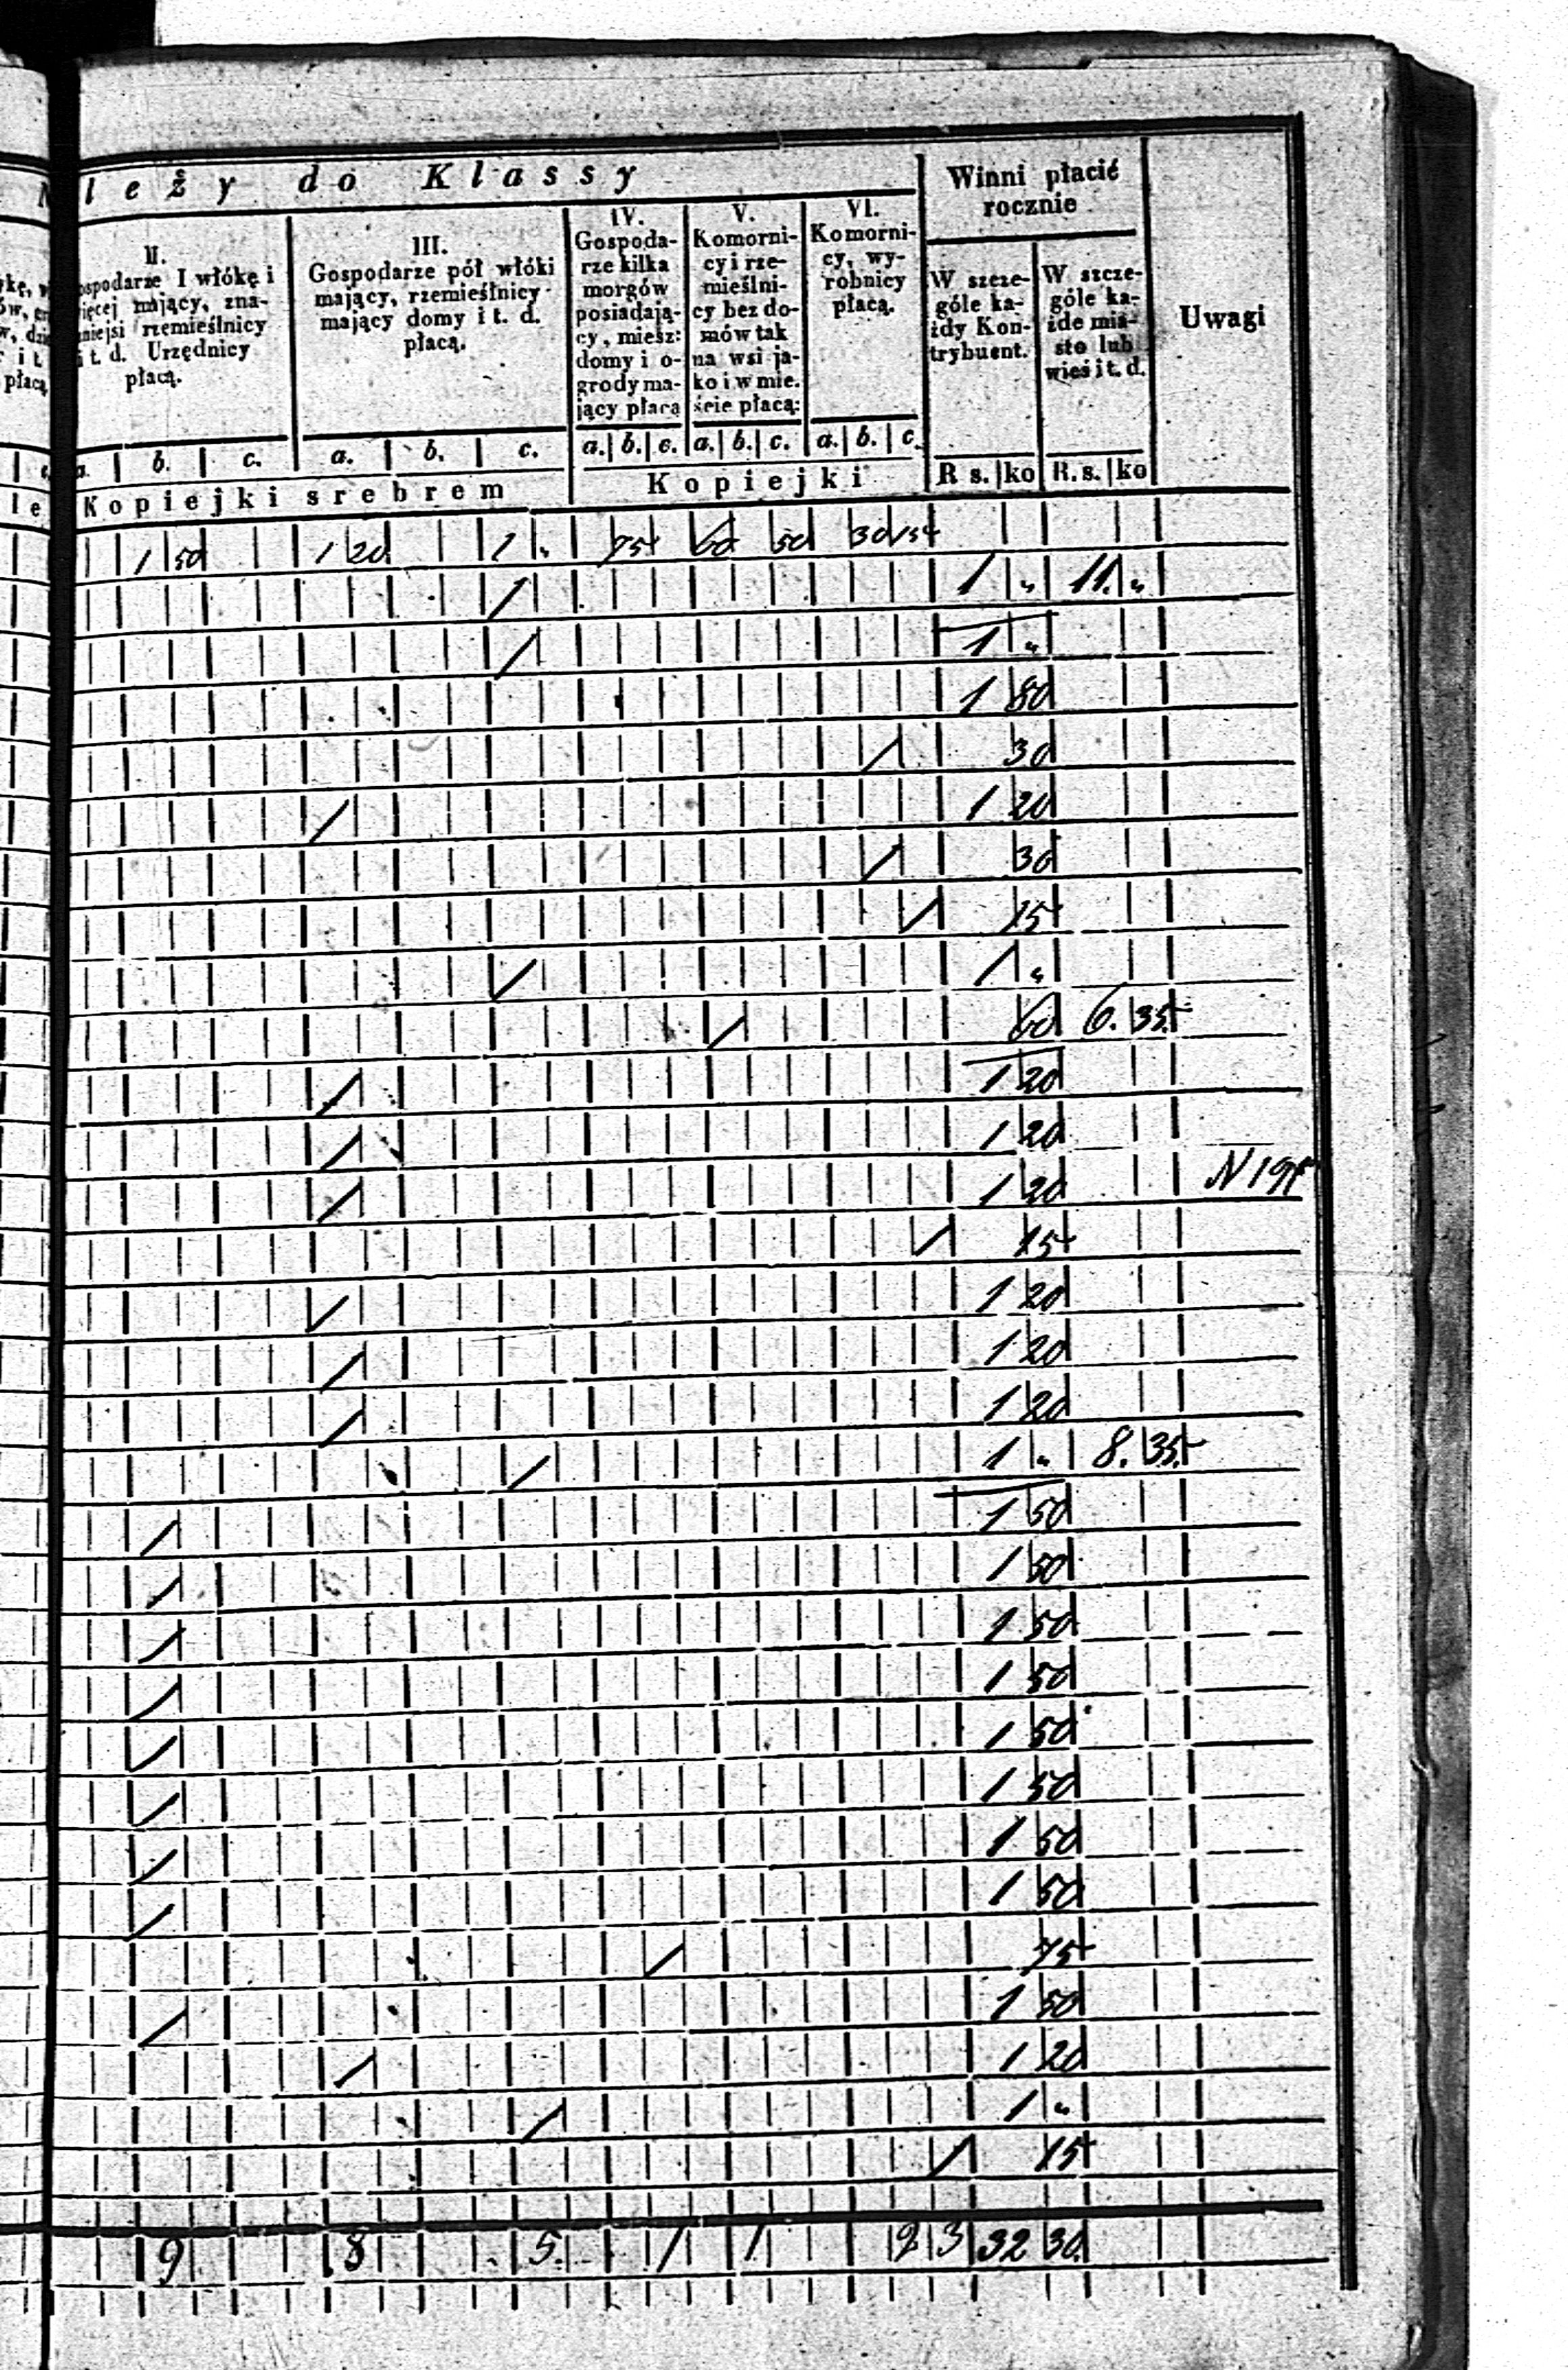 leży do Klassy
Winni płacić
rocznie
Uwagi
II.
Gospodarze I włókę i
więcej mający, zna-
czniejsi rzemieślnicy
i t. d. Urzędnicy
płacą.
III.
Gospodarze pół włóki
mający, rzemieślnicy
mający domy i t. d.
płacą.
IV.
Gospoda-
rze kilka
morgów
posiadają-
cy, miesz:
domy i o-
grody ma-
jący płacą
V.
Komorni-
cy i rze-
mieślni-
cy bez do-
mów tak
na wsi ja-
ko i w mie.
ście płacą:
VI.
Komorni-
cy, wy-
robnicy
płacą.
W szcze-
góle ka-
żdy Kon-
trybuent.
W szcze-
góle ka-
żde mia-
sto lub
wieś i t. d.
płacą
a. b. c. a. b. c. a. b. c. a. b. c. a. b. c.
Kopiejki srebrem Kopiejki R s. ko R. s. ko
1 50 1 20 1 „ 75 60 50 30 15
/ 1 „ 11. „
/ 1 „
1 80
/ 30
/ 1 20
/ 30
/ 15
/ 1 „
/ 60 6. 35.
/ 1 20
/ 1 20
/ 1 20 N 191
/ 15
/ 1 20
/ 1 20
/ 1 20
/ 1 „ 8. 35.
/ 1 50
/ 1 50
/ 1 50
/ 1 50
/ 1 50
/ 1 50
/ 1 50
/ 1 50
/ 75
/ 1 50
/ 1 20
/ 1 „
/ 15
9 8 5 1 1 2 3 32 30